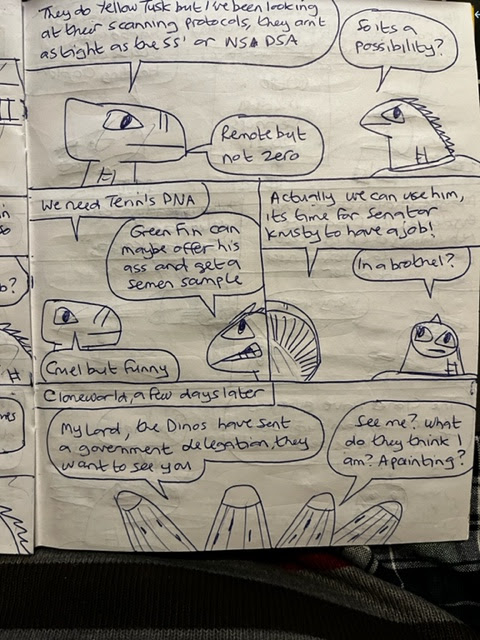 They do Yellow Tusk but I've been looking
at their scanning protocols, they arnt
as tight as the SS' or NSA DSA
So its a
possibility?
Remote but
not zero
We need Tenn's DNA
Green Fin can
maybe offer his
ass and get a
semen sample
Cruel but funny
Actually we can use him,
its time for Senator
Krusby to have a job!
In a brothel?
Cloneworld, a few days later
My Lord, the Dinos have sent
a government delegation, they
want to see you
See me? What
do they think I
am? A painting?